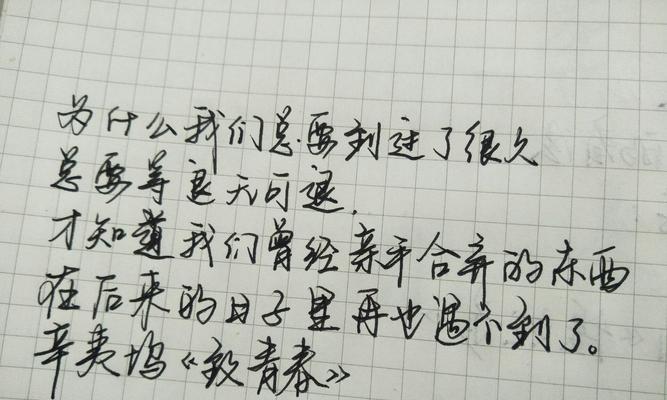 为什么我们总要到过了很久
总要等退无可退,
才知道我们曾经亲手舍弃的东西
在后来的日子里再也遇不到了。
辛夷坞《致青春》